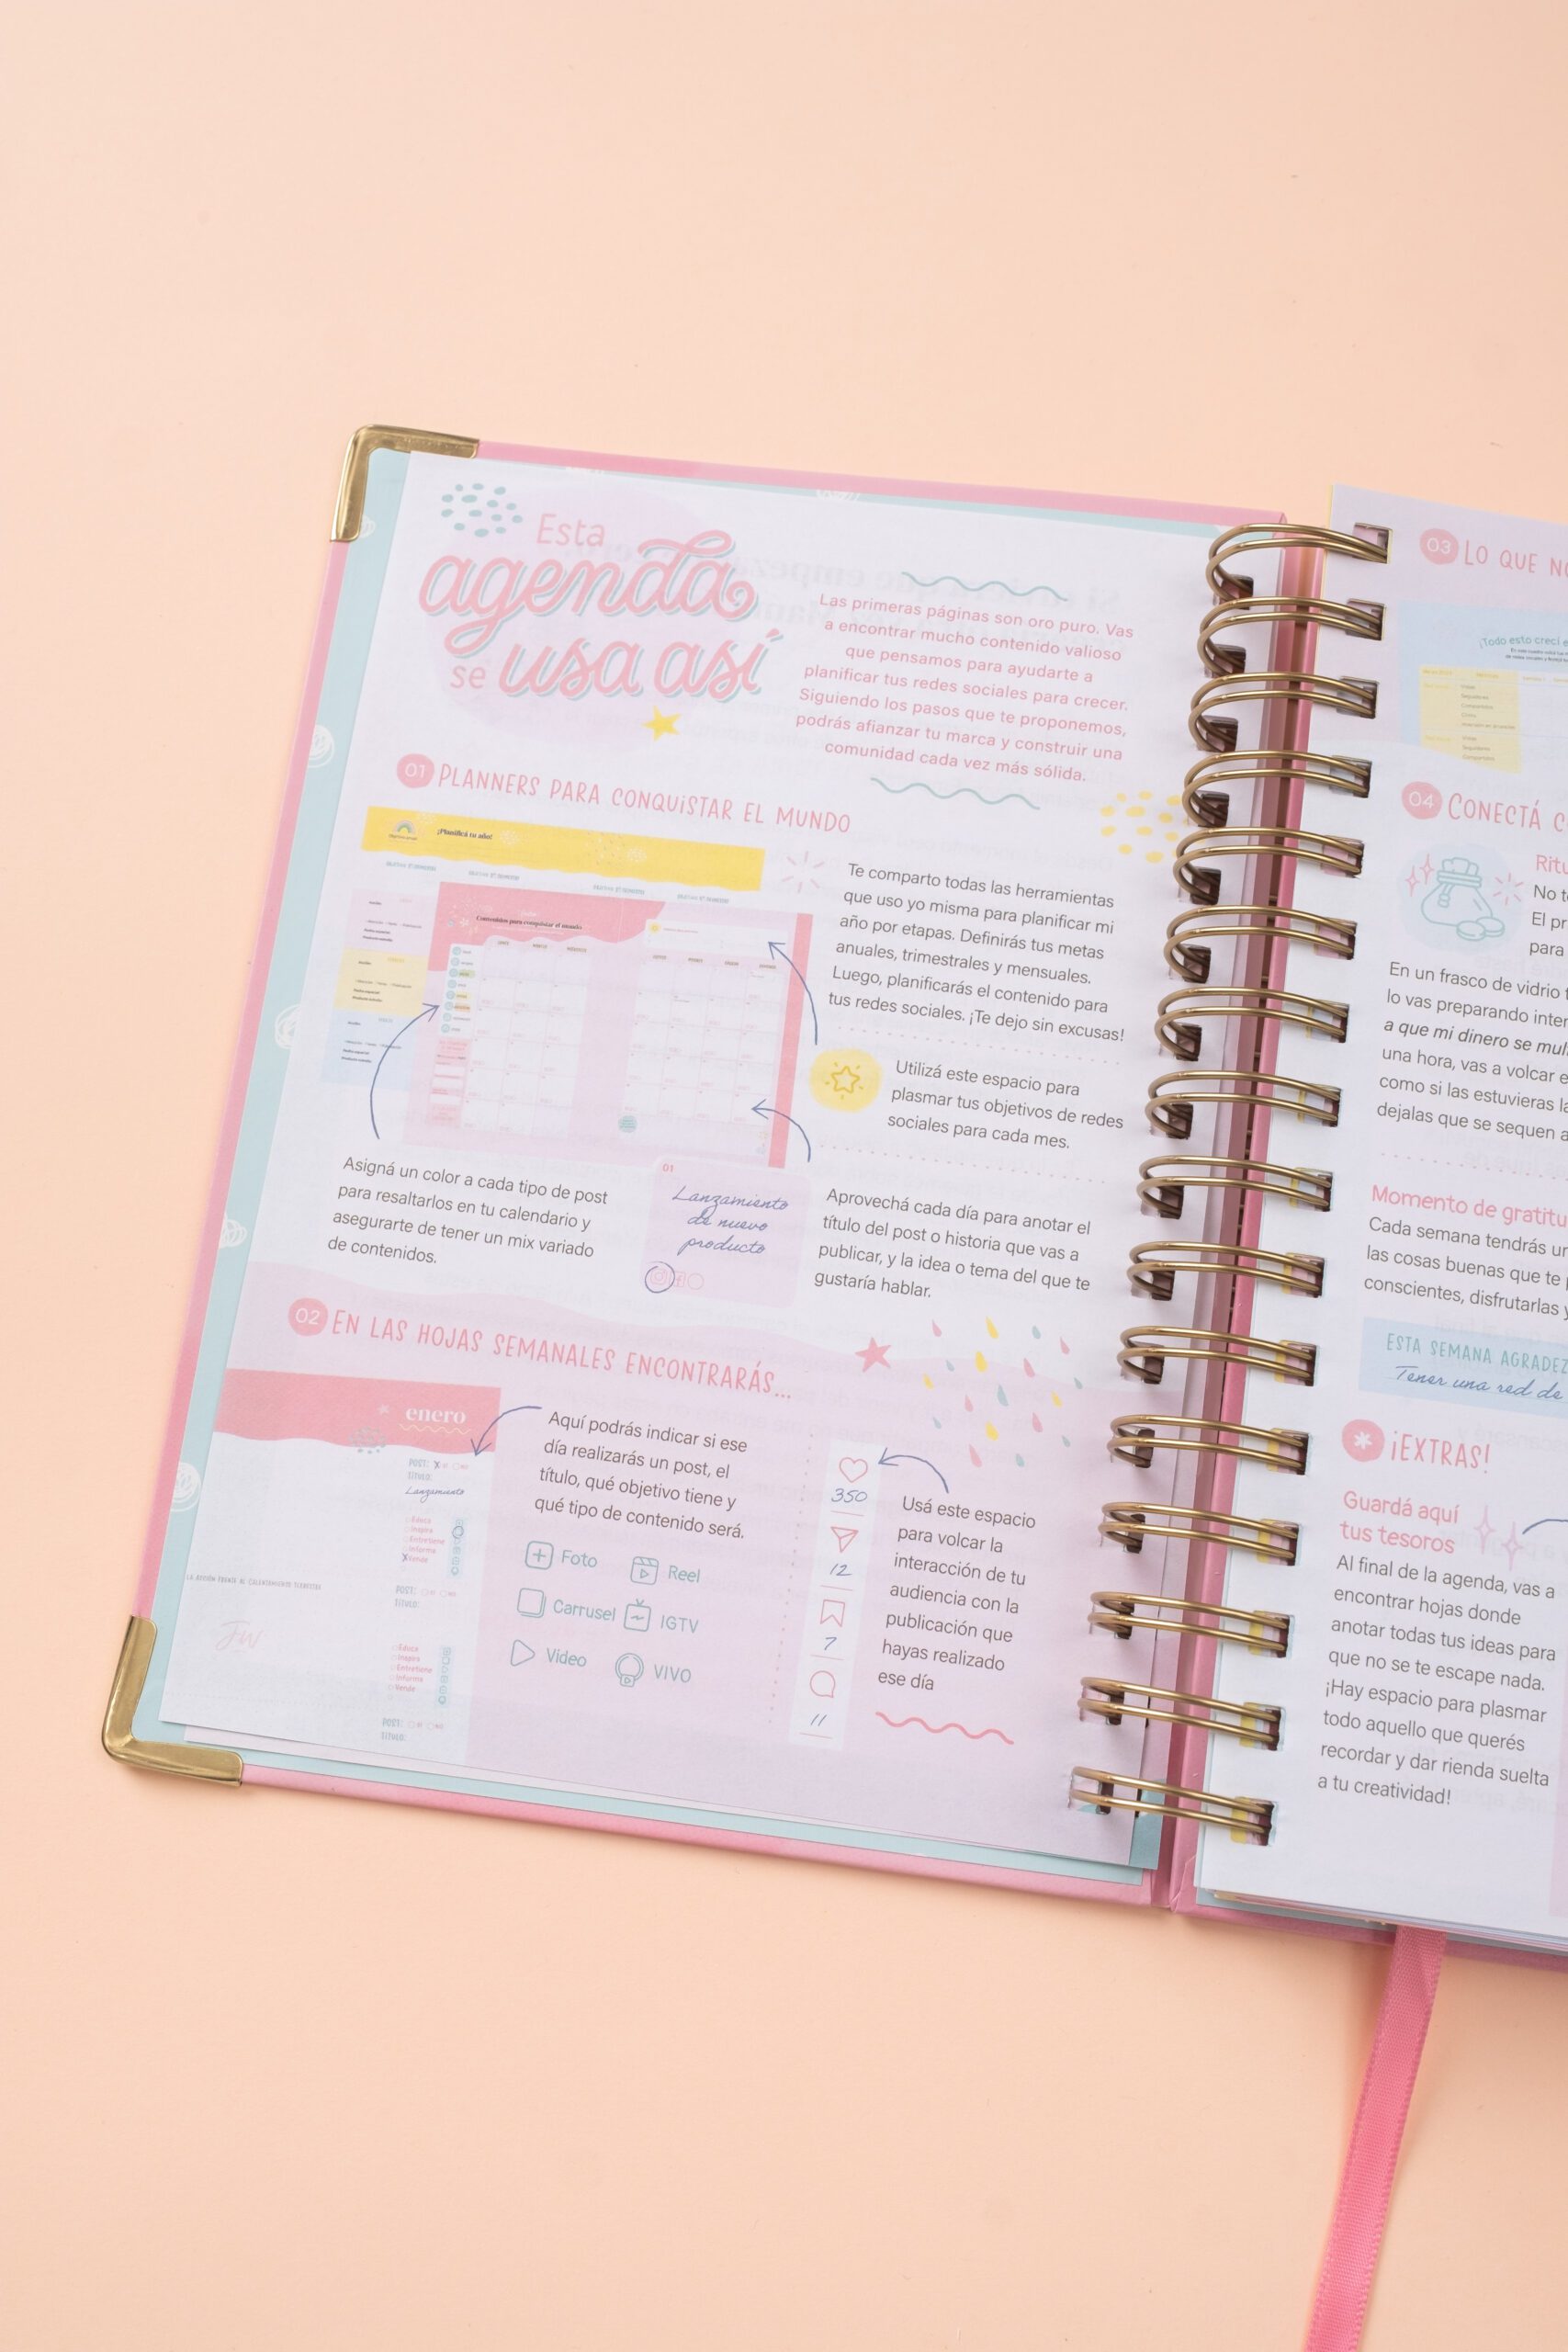 Esta
agenda
se usa así
Las primeras páginas son oro puro. Vas
a encontrar mucho contenido valioso
que pensamos para ayudarte a
planificar tus redes sociales para crecer.
Siguiendo los pasos que te proponemos,
podrás afianzar tu marca y construir una
comunidad cada vez más sólida.
01 PLANNERS PARA CONQUISTAR EL MUNDO
¡Planificá tu año!
Contenidos para conquistar el mundo
Te comparto todas las herramientas
que uso yo misma para planificar mi
año por etapas. Definirás tus metas
anuales, trimestrales y mensuales.
Luego, planificarás el contenido para
tus redes sociales. ¡Te dejo sin excusas!
Utilizá este espacio para
plasmar tus objetivos de redes
sociales para cada mes.
Asigná un color a cada tipo de post
para resaltarlos en tu calendario y
asegurarte de tener un mix variado
de contenidos.
01
Lanzamiento
de nuevo
producto
Aprovechá cada día para anotar el
título del post o historia que vas a
publicar, y la idea o tema del que te
gustaría hablar.
02 EN LAS HOJAS SEMANALES ENCONTRARÁS...
enero
POST: X
TÍTULO:
Lanzamiento
Educa
Inspira
Entretiene
Informa
X Vende
POST:
TÍTULO:
Educa
Inspira
Entretiene
Informa
Vende
POST:
TÍTULO:
Aquí podrás indicar si ese
día realizarás un post, el
título, qué objetivo tiene y
qué tipo de contenido será.
Foto
Reel
Carrusel
IGTV
Video
VIVO
350
12
7
11
Usá este espacio
para volcar la
interacción de tu
audiencia con la
publicación que
hayas realizado
ese día
03 LO QUE NO
¡Todo esto crecí e
04 CONECTÁ C
Ritu
No t
El pr
para
En un frasco de vidrio
lo vas preparando inter
a que mi dinero se mul
una hora, vas a volcar e
como si las estuvieras la
dejalas que se sequen a
Momento de gratitu
Cada semana tendrás un
las cosas buenas que te
conscientes, disfrutarlas y
ESTA SEMANA AGRADEZ
Tener una red de
¡EXTRAS!
Guardá aquí
tus tesoros
Al final de la agenda, vas a
encontrar hojas donde
anotar todas tus ideas para
que no se te escape nada.
¡Hay espacio para plasmar
todo aquello que querés
recordar y dar rienda suelta
a tu creatividad!